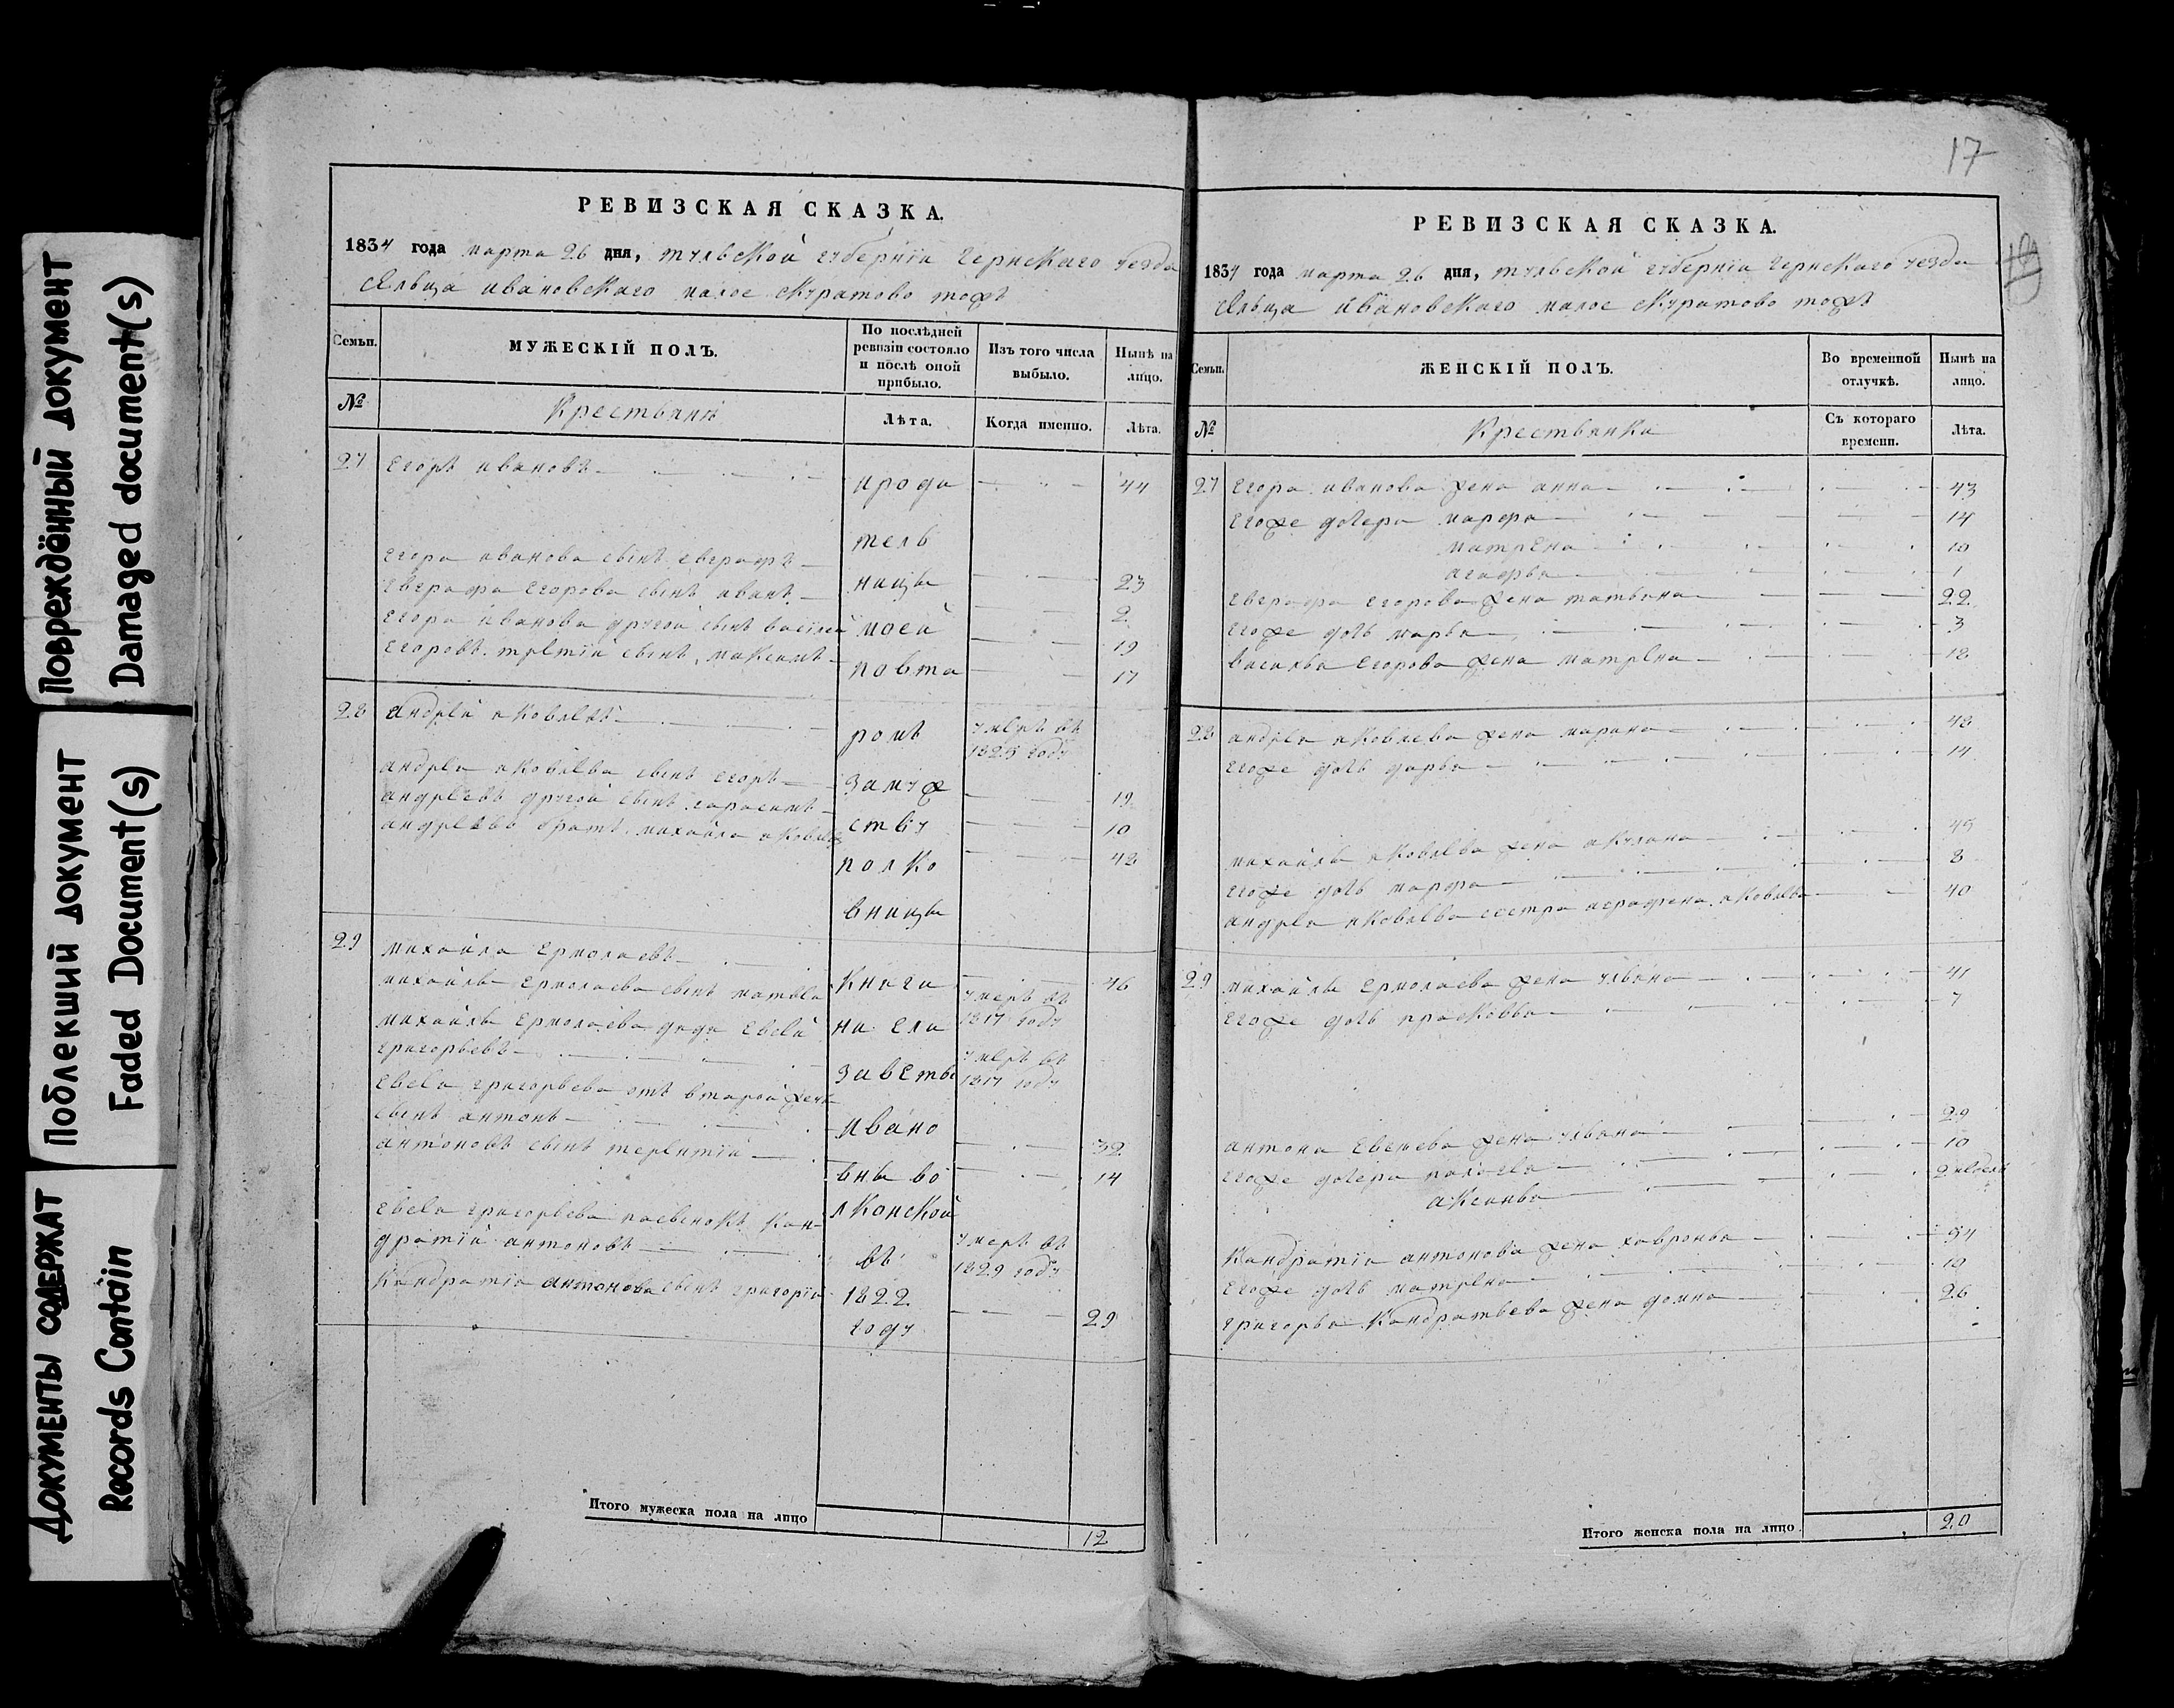 Повреждённый документ
Damaged document(s)
Поблекший документ
Faded Document(s)
Документы содержат
Records Contain
РЕВИЗСКАЯ СКАЗКА.
1834 года марта 26 дня, тульской губернiи Чернскаго уезда
Сельца ивановскаго малое скуратово тожъ
Семьи.
МУЖЕСКIЙ ПОЛЪ.
По послѣдней ревизiи состояло и послѣ оной прибыло.
Изъ того числа выбыло.
Нынѣ на лицо.
№
Крестьянѣ
Лѣта.
Когда именно.
Лѣта.
27 Егоръ ивановъ 44
егора иванова сынъ евграфъ 23
евграфа Егорова сынъ иванъ 2
егора иванова другой сынъ василей 19
егоровъ третiй сынъ максимъ 17
28 андрей яковлевъ умеръ въ 1825 году
андрея яковлева сынъ егоръ 19
андреевъ другой сынъ герасимъ 10
андреевъ братъ михайла яковлевъ 42
29 михайла ермолаевъ 46
михайлы ермолаева сынъ матвей умеръ въ 1817 году
михайлы ермолаева дядя Евсей
григорьевъ умеръ въ 1817 году
Евсея григорьева отъ второй жены
сынъ антонъ 32
антоновъ сынъ терентiй 14
евсея григорьева пасынокъ кон-
дратiй антоновъ умеръ въ 1829 году
Кондратiя антонова сынъ григорiй 29
прода
тель
ницы
моей
повта
ромъ
замуж
ству
полко
вницы
княги
ни ели
заветы
Ивано
вны во
лконской
въ
1822
году
Итого мужеска пола на лицо 12
17
РЕВИЗСКАЯ СКАЗКА.
1834 года марта 26 дня, тульской губернiи Чернскаго уезда
Сельца ивановскаго малое скуратово тожъ
Семьи.
ЖЕНСКIЙ ПОЛЪ.
Во временной отлучкѣ.
Нынѣ на лицо.
№
Крестьянки
Съ котораго времени.
Лѣта.
27 Егора иванова жена анна 43
егоже дочери марфа 14
матрена 10
агафья 1
евграфа егорова жена татьяна 22
егоже дочь марья 3
василья егорова жена матрена 18
28 андрея яковлева жена марина 48
егоже дочь дарья 14
михайлы яковлева жена акулина 45
егоже дочь марфа 8
андрея яковлева сестра аграфена яковлева 40
29 михайлы ермолаева жена ульяна 41
егоже дочь прасковья 7
антона Евсеева жена ульяна 29
егоже дочери палагея 10
аксинья 2 недели
Кондратiя антонова жена хавронья 54
Егоже дочь матрена 10
григорья Кондратьева жена домна 26
Итого женска пола на лицо 20